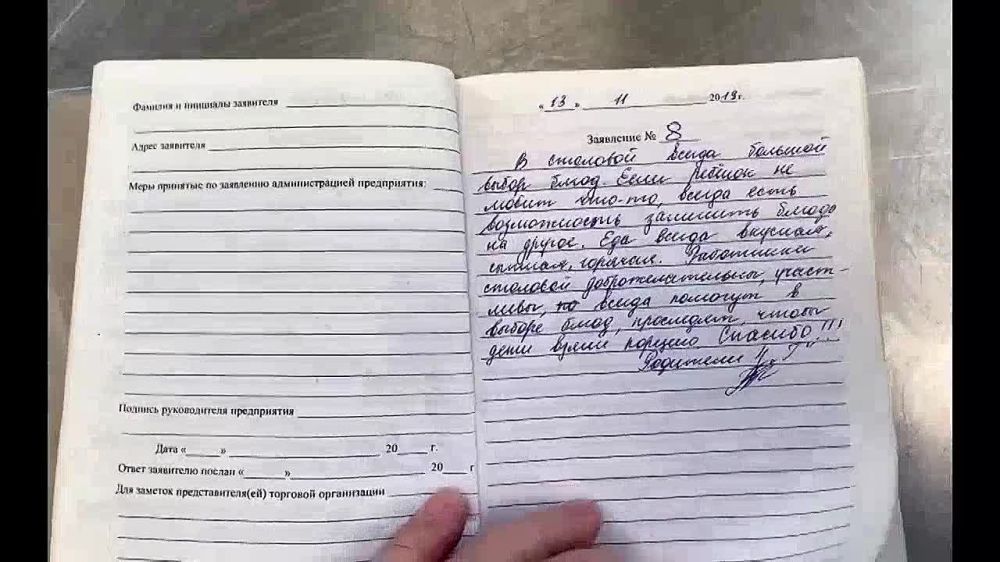 Фамилия и инициалы заявителя
Адрес заявителя
Меры принятые по заявлению администрацией предприятия:
Подпись руководителя предприятия
Дата «____» ____ 20____ г.
Ответ заявителю послан «____» ____ 20____ г
Для заметок представителя(ей) торговой организации
« 13 » 11 2019г.
Заявление № 8
В столовой всегда большой
выбор блюд. Если ребёнок не
любит что-то, всегда есть
возможность заменить блюдо
на другое. Еда всегда вкусная,
сытная, горячая. Работники
столовой доброжелательны, участ-
ливы, всегда помогут в
выборе блюд, проследят, чтобы
дети взяли порцию. Спасибо!!!
Родители